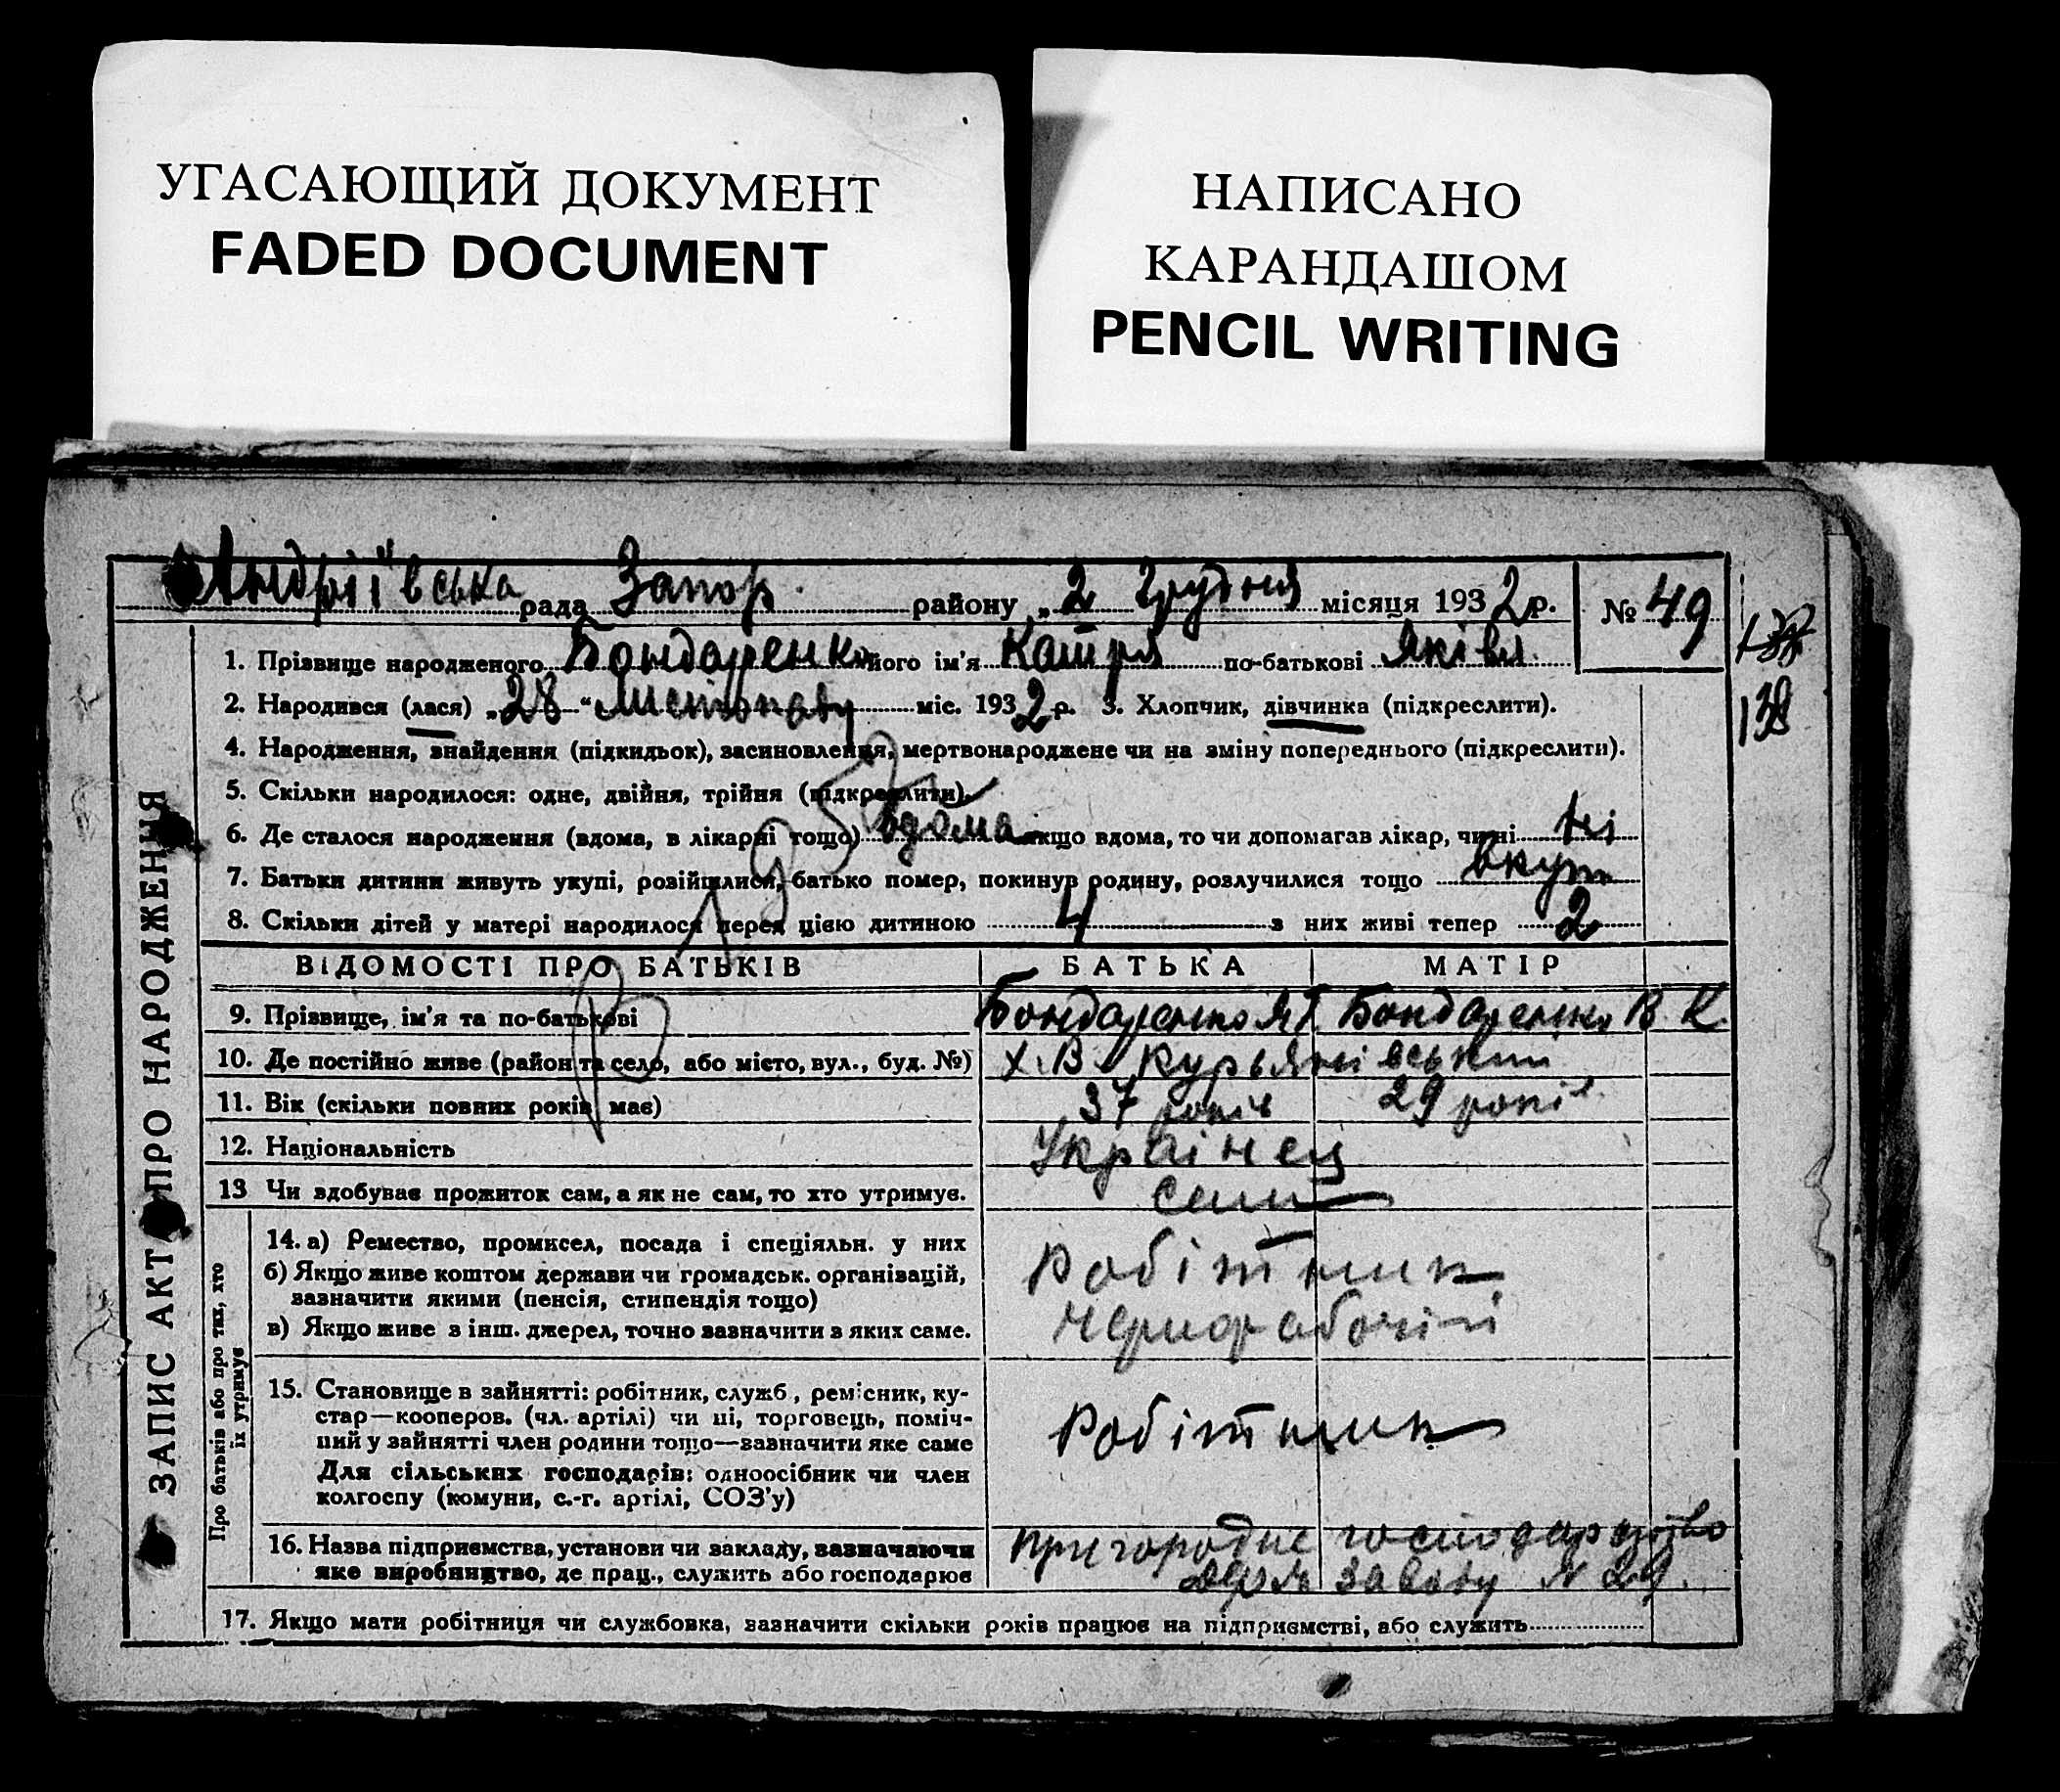 УГАСАЮЩИЙ ДОКУМЕНТ
FADED DOCUMENT
НАПИСАНО
КАРАНДАШОМ
PENCIL WRITING
Андріївська рада Запор. району „2 грудня місяця 1932 р. № 49
138
1. Прізвище народженого Бондаренко його ім'я Катря по-батькові Яківл.
2. Народився (лася) „28“ листопаду міс. 1932 р. 3. Хлопчик, дівчинка (підкреслити).
4. Народження, знайдення (підкидьок), засиновлення, мертвонароджене чи на зміну попереднього (підкреслити).
5. Скільки народилося: одне, двійня, трійня (підкреслити)
6. Де сталося народження (вдома, в лікарні тощо) вдома якщо вдома, то чи допомагав лікар, чи ні ні
7. Батьки дитини живуть укупі, розійшлися, батько помер, покинув родину, розлучилися тощо вкупі
8. Скільки дітей у матері народилося перед цією дитиною 4 з них живі тепер 2
ВІДОМОСТІ ПРО БАТЬКІВ БАТЬКА МАТІР
9. Прізвище, ім'я та по-батькові Бондаренко Бондаренко В. К.
10. Де постійно живе (район та село, або місто, вул., буд. №) Х. В. Курьянівський
11. Вік (скільки повних років має) 37 років 29 років
12. Національність Українец
13 Чи здобуває прожиток сам, а як не сам, то хто утримує. сам
14. а) Ремество, промисел, посада і спеціяльн. у них Робітник
б) Якщо живе коштом держави чи громадськ. організацій,
зазначити якими (пенсія, стипендія тощо)
в) Якщо живе з інш. джерел, точно зазначити з яких саме. чернорабочій
15. Становище в зайнятті: робітник, служб., ремісник, ку-
стар—кооперов. (чл. артілі) чи ні, торговець, поміч-
ний у зайнятті член родини тощо—зазначити яке саме Робітник
Для сільських господарів: одноосібник чи член
колгоспу (комуни, с.-г. артілі, СОЗ'у)
16. Назва підприємства, установи чи закладу, зазначаючи Пригородне господарство
яке виробництво, де прац., служить або господарює заводу № 29.
17. Якщо мати робітниця чи службовка, зазначити скільки років працює на підприємстві, або служить
ЗАПИС АКТ ПРО НАРОДЖЕННЯ
Про батьків або про тих, хто
їх утримує